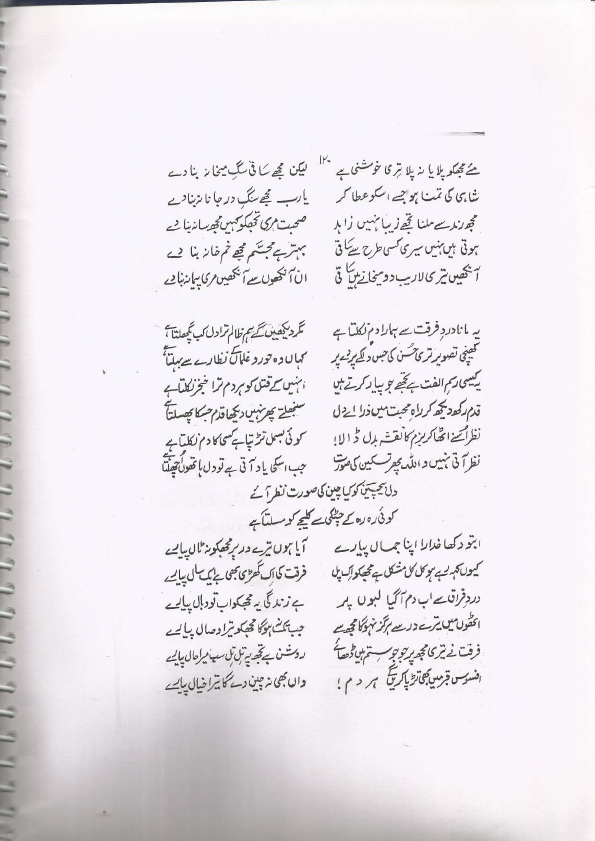 ۱۲۰
مئے مجھکو پلا یا نہ پلا تری خوشنی ہے لیکن مجھے ساقی سگِ میخانہ بنا دے
شاہی کی تمنا ہو جسے اسکو عطا کر یارب مجھے سنگِ درِ جانانہ بنا دے
مجھ رند سے ملنا تجھے زیبا نہیں زاہد صحبت مری تجھکو کہیں مجھ سا نہ بنا دے
ہوتی ہیں نہیں سیری کسی طرح سے ساقی بہتر ہے مجسّم مجھے خم خانہ بنا دے
آنکھیں تیری لاریب دو میخانے ہیں ساقی ان آنکھوں سے آنکھیں مری پیمانہ بنا دے
یہ مانا دردِ فرقت سے ہمارا دم نکلتا ہے مگر دیکھیں گے ہم ظالم ترا دل کب پگھلتا ہے
کھینچی تصویر تری حُسن کی جس دلکے پردے پر کہاں وہ حور و غلماں کے نظارے سے بہلتا ہے
یہ کیسی رسمِ الفت ہے تجھے جو پیار کرتے ہیں انہیں کے قتل کو ہر دم ترا خنجر نکلتا ہے
قدم رکھ دیکھ کر راہِ محبت میں ذرا اے دل سنبھلتے پھر نہیں دیکھا قدم جسکا پھسلتا ہے
نظر اُسنے اٹھا کر بزم کا نقشہ بدل ڈالا! کوئی بسمل تڑپتا ہے کسی کا دم نکلتا ہے
نظر آتی نہیں واللہ پھر تسکین کی صورت جب اسکی یاد آتی ہے تو دل ہاتھوں اُچھلتا ہے
دل بیچین کو کیا چین کی صورت نظر آئے
کوئی رہ رہ کے چٹکی سے کلیجے کو مسلتا ہے
ابتو دکھا خدارا اپنا جمال پیارے آیا ہوں تیرے در پر مجھکو نہ ٹال پیارے
کیوں کر ہو کل مشکل ہے مجھکو اک پل فرقت کی اک گھڑی بھی ہے ایک سال پیارے
دردِ فراق سے اب دم آ گیا لبوں پر ہے زندگی یہ مجھکو اب تو وبال پیارے
اٹھوں میں تیرے در سے ہرگز نہو گا مجھ سے جب تک نہ ہو گا مجھکو تیرا وصال پیارے
فرقت نے تیری مجھ پر جو جو ستم ہیں ڈھائے روشن ہے تجھ پہ تِل تِل سب میرا حال پیارے
افسوس قبر میں بھی تڑپا کریں گے ہر دم! واں بھی نہ چین دے گا ترا خیال پیارے